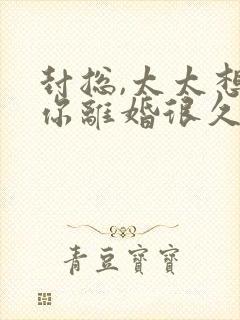 封总,太太想
你離婚很久
青豆寶寶